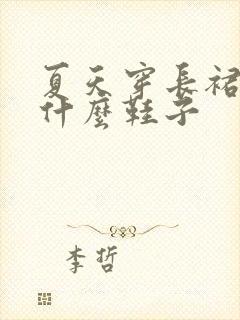 夏天穿長裙
什麼鞋子
李哲